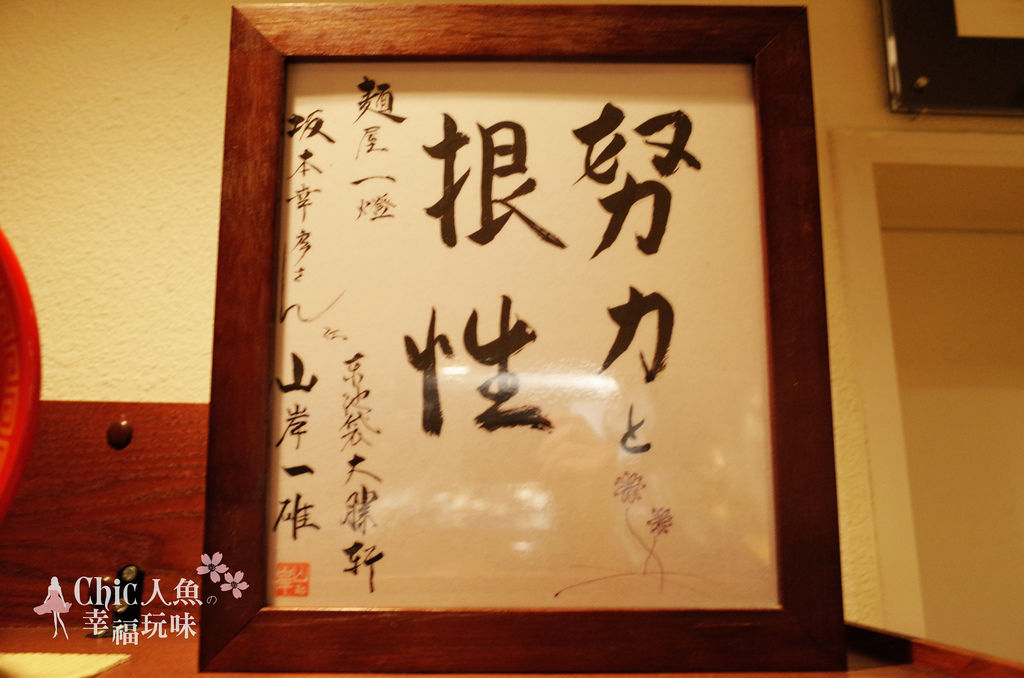 努力と
根性
麺屋一燈
坂本幸彦さん江
東池袋大勝軒
山岸一雄
Chic人魚の
幸福玩味